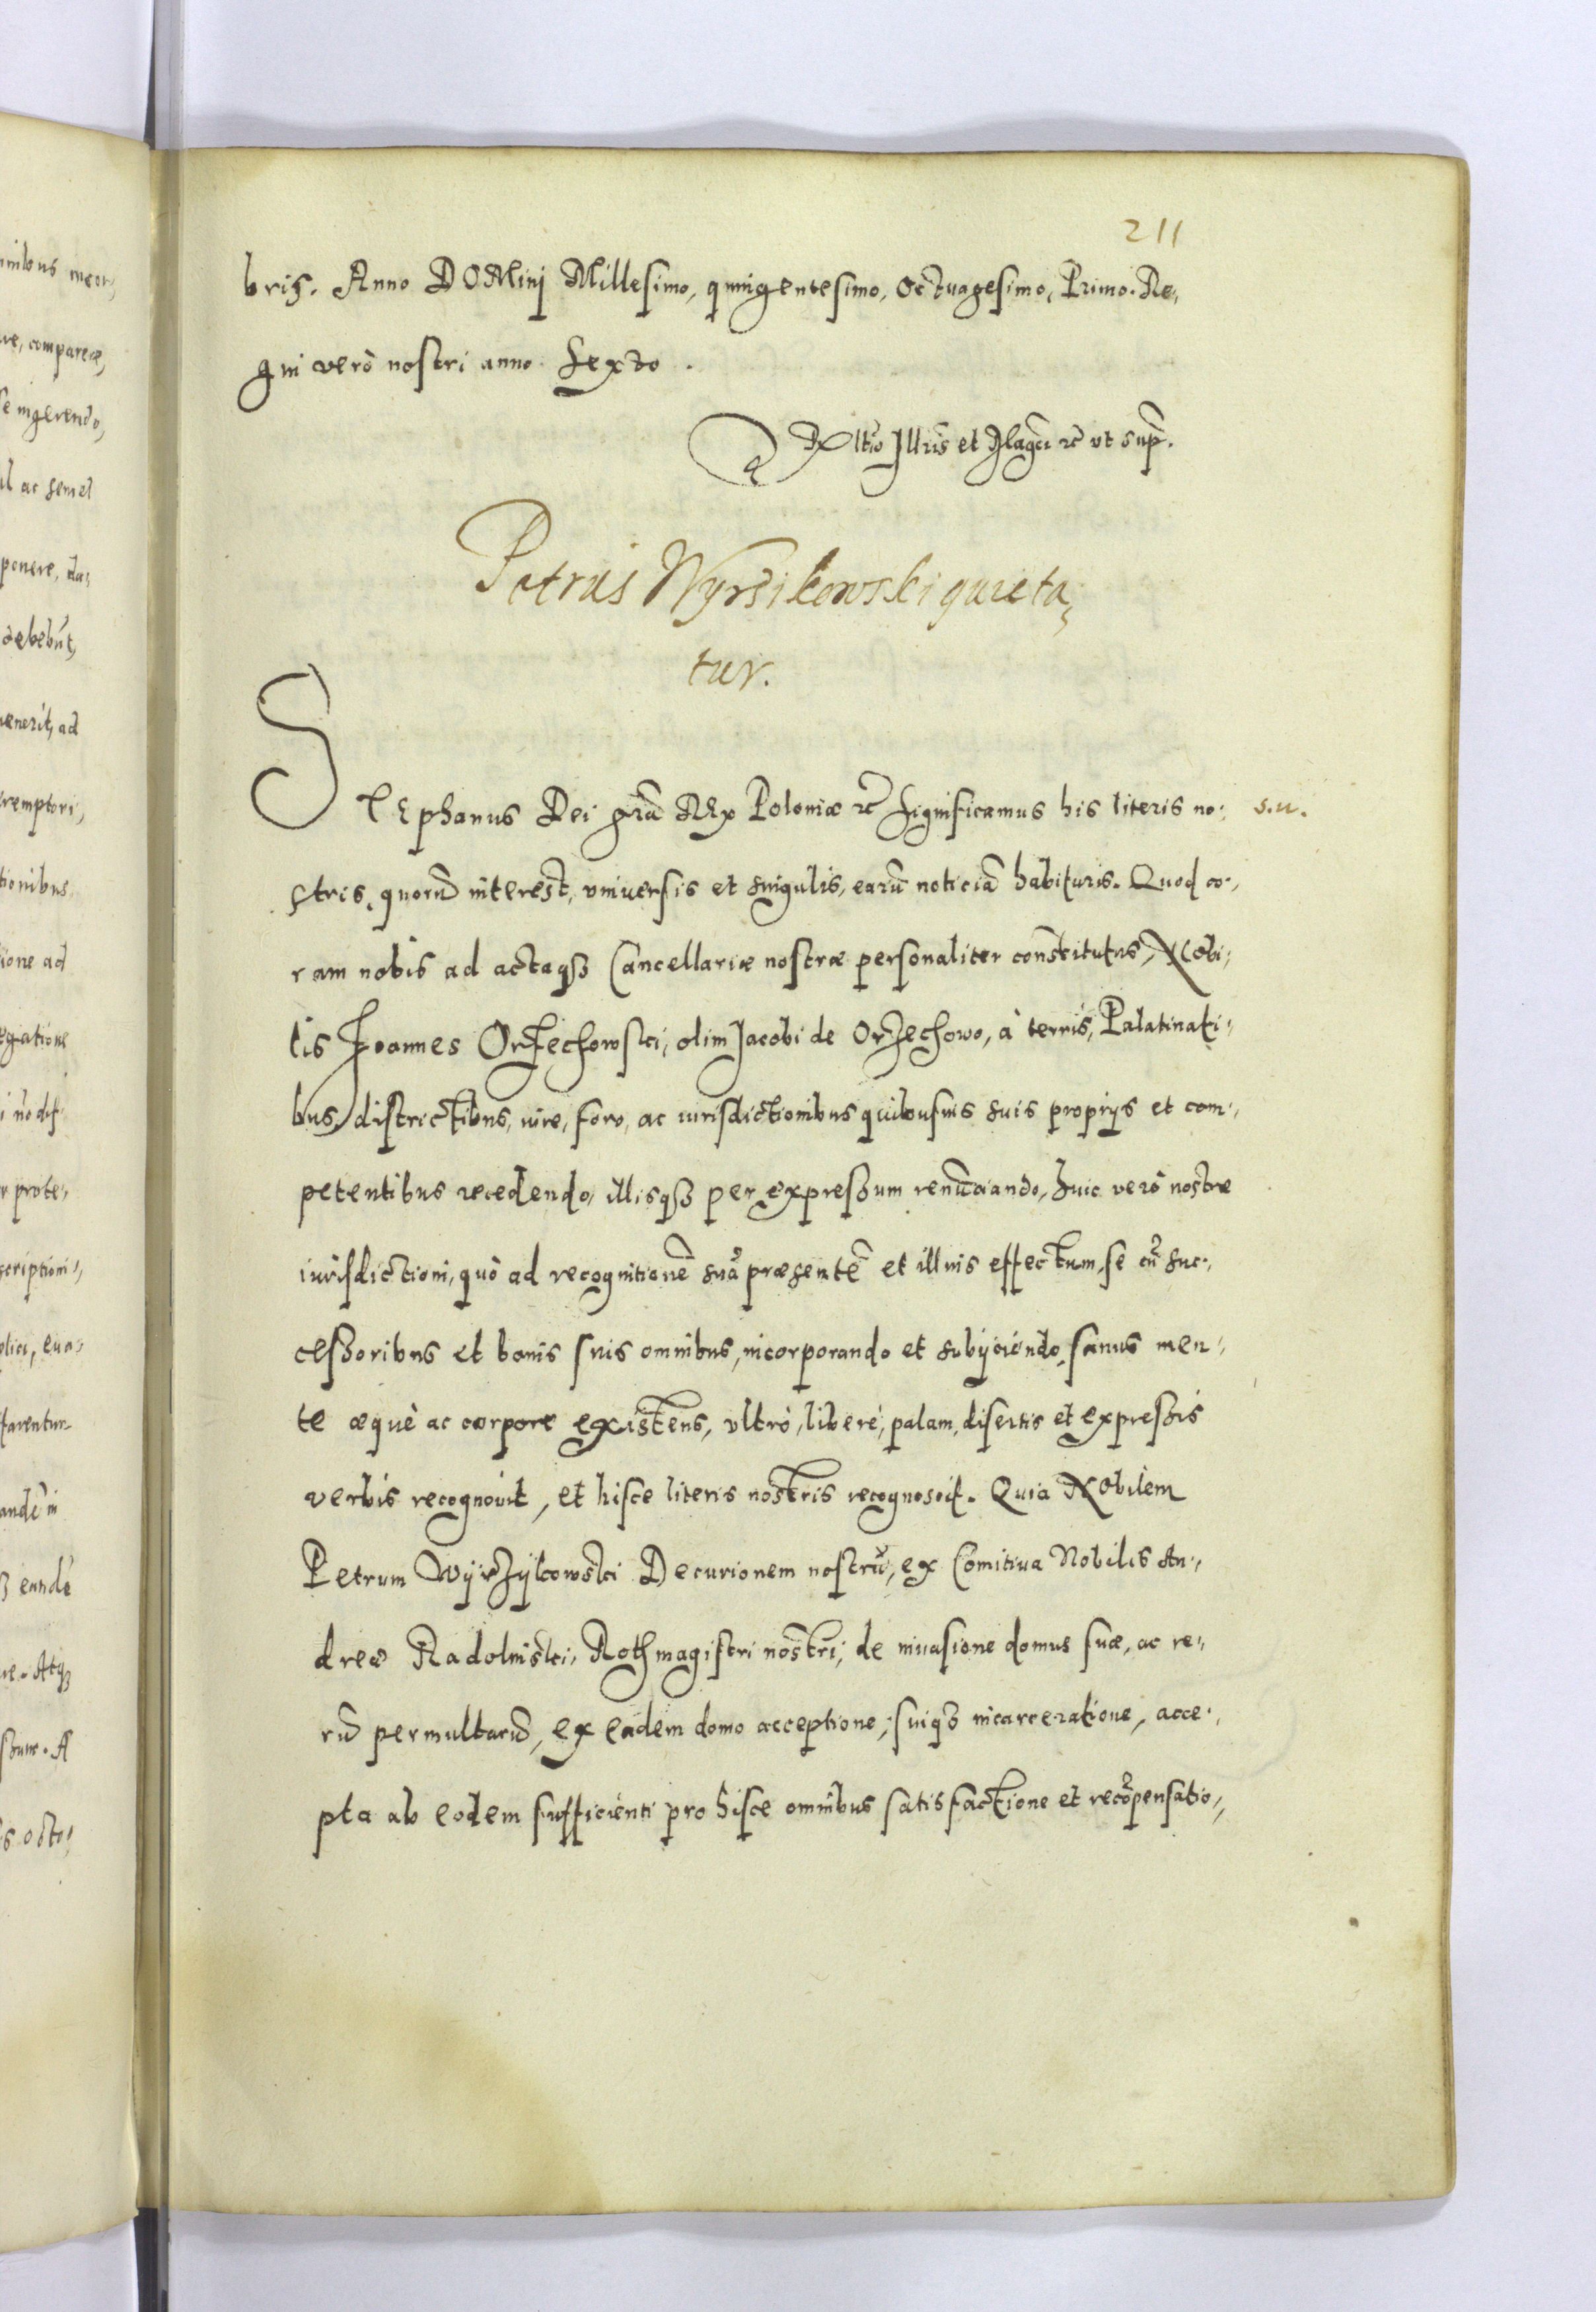 211
bris. Anno DOMinj Millesimo, quingentesimo, Octuagesimo, Primo. Re,
gni verò nostri anno Sexto.
Rltio Illris et Magci rc ut sup.
Petrus Wyrsikowski quieta,
tur.
STEphanus Dei gra REx Poloniæ rc Significamus his literis no, s.u.
stris, quorũ interest, vniuersis et singulis, earũ noticiã habituris. Quod co,
ram nobis ad actaqꝫ Cancellariæ nostræ personaliter constitutus, Nobi,
lis Joannes Orzechowski, olim Jacobi de Orzechowo, à terris, Palatinati,
bus, districtibus, iure, foro, ac iurisdictionibus quibusuis suis proprijs et com,
petentibus recedendo, illisqꝫ per expressum renũciando, huic verò nostræ
iurisdictioni, quò ad recognitionẽ suã præsentẽ et illius effectum, se cũ suc,
cessoribus et bonis suis omnibus, incorporando et subijciendo, sanus men,
te æquè ac corpore existens, vltrò, liberè, palam, disertis et expressis
verbis recognouit, et hisce literis nostris recognoscit. Quia Nobilem
Petrum Wyrzykowski Decurionem nostrũ, ex Comitiua Nobilis An,
dreæ Radolinski, Rothmagistri nostri, de inuasione domus suæ, ac re,
rũ permultarũ, ex eadem domo acceptione, suiqꝫ incarceratione, acce,
pta ab eodem sufficienti pro hisce omnibus satisfactione et recõpensatio,
inibus incor,
re, comparere,
se ingerendo,
l ac semel
ponere, da,
debebũt,
uenerit, ad
remptori,
tionibus
ione ad
i nõ def
r prote,
scriptioni,
plici, eua,
tarentur
andẽ in
ꝫ eandẽ
re. Atqꝫ
s octo,